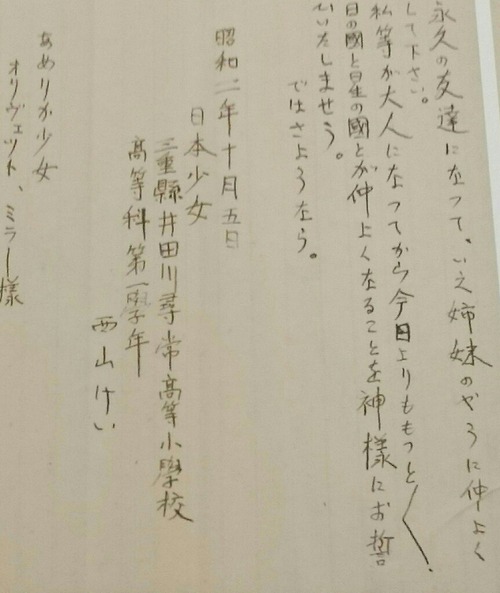 永久の友達になつて、いえ姉妹のやうに仲よく
して下さい。
私等が大人になつてから今日よりももつと〳〵
日の國と星の國とが仲よくなることを神様にお誓
いいたしませう。
ではさようなら。
昭和二年十月五日
日本少女
三重縣井田川尋常高等小學校
高等科第一學年
西山けい
あめりか少女
オリヴェット、ミラー様